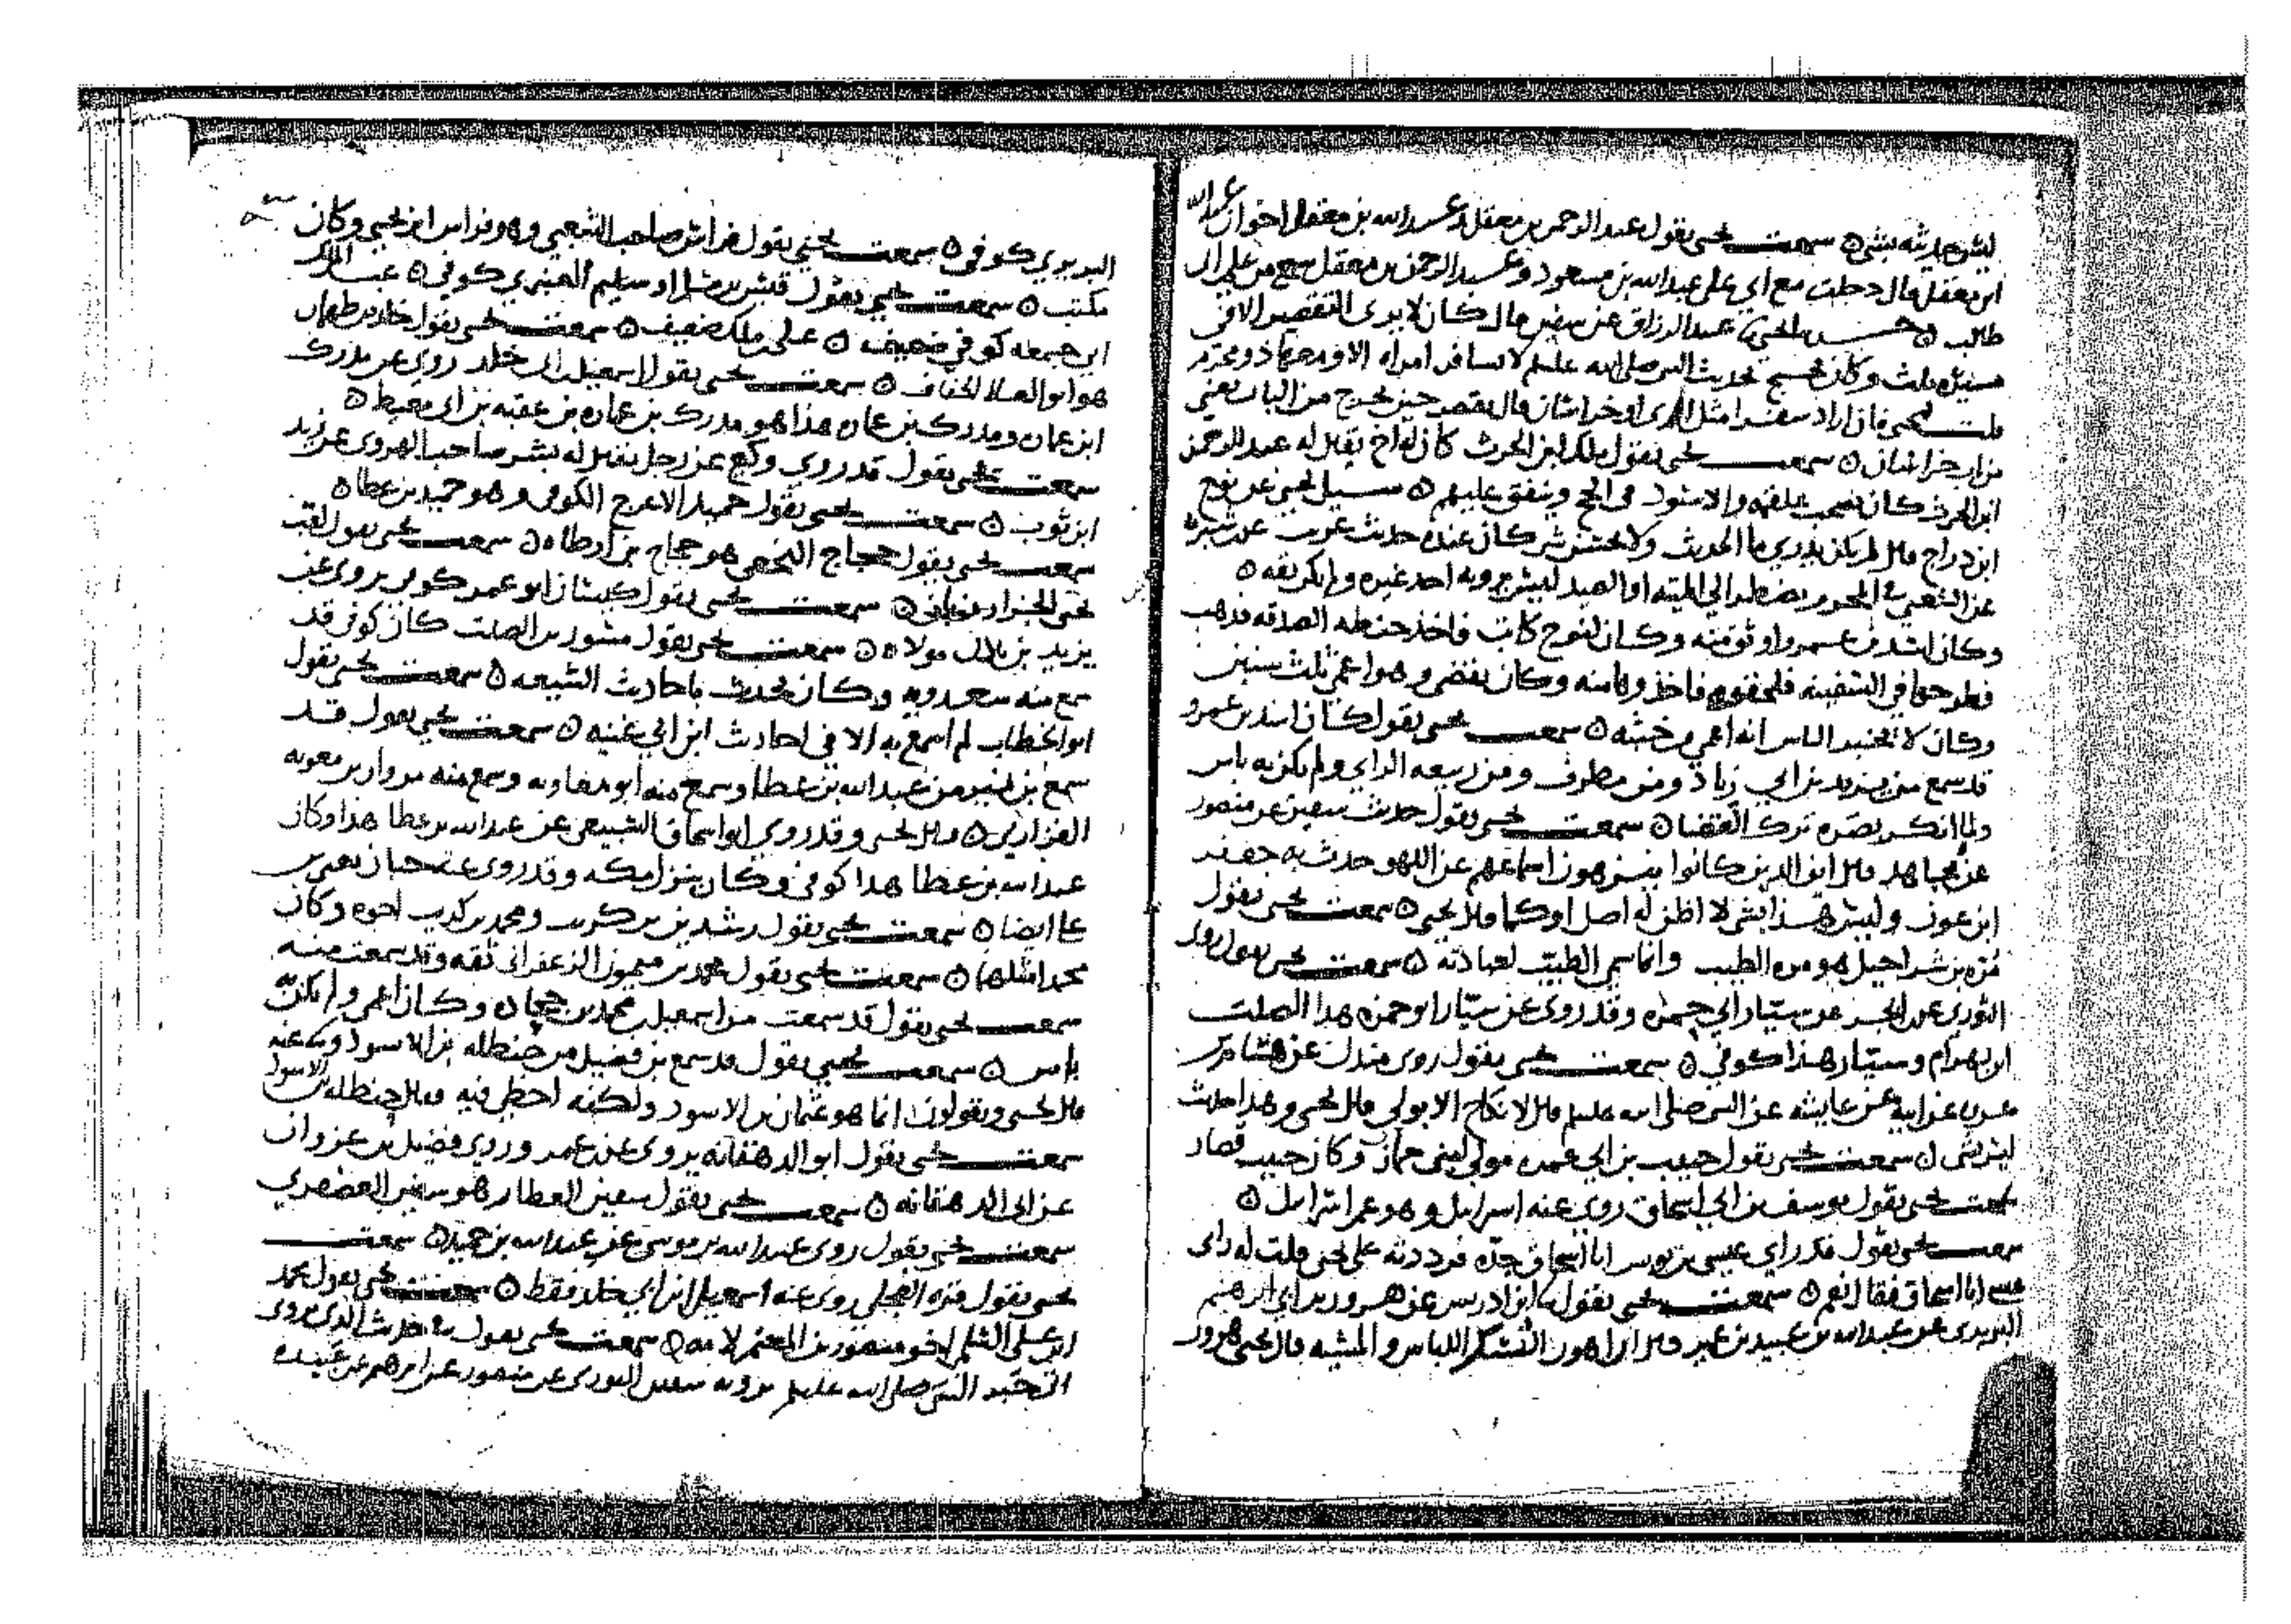 ليس حديثه بشي ٥ سمعت يحيى يقول عبد الرحمن بن معقل وعبد الله بن معقل اخوان عبد الله
ابن معقل قال دخلت مع ابي على عبد الله بن مسعود وعبد الرحمن بن معقل سمع من علي بن ابي
طالب ٥ يحيى عبد الرزاق عن سفين قال كان لا يرى التقصير الا في
مسيرة ثلث وكان يحتج بحديث النبي صلى الله عليه وسلم لا تسافر امراة الا ومعها ذو محرم
قلت ليحيى فان اراد سفرا مثل الري او خراسان قال يقصر حين يخرج من الباب يعني
من اراد خراسان ٥ سمعت يحيى يقول ملك ابن الحرث كان له اخ يقال له عبد الرحمن
ابن الحرث كان يصحب علقمه والاسود في الحج وينفق عليهم ٥ سيل يحيى عن نوح
ابن دراج قال لم يكن يدري ما الحديث ولا يحسن شي كان عنده حديث غريب عن
عن الشعبي في المحرم يضطر الى الميته او الصيد ليس يرويه احد غيره ولم يكن ثقه ٥
وكان اسد بن عمرو اوثق منه وكان لنوح كاتب فاخذ حنطه الصدقه فذهب
فطرحها في السفينه فلحقوه فاخذوها منه وكان يقضي وهو اعمى ثلث سنين
وكان لا يخبر الناس انه اعمى من خبثه ٥ سمعت يحيى يقول كان اسد بن عمرو
قد سمع من يزيد بن ابي زياد ومن مطرف ومن ربيعه الراي ولم يكن به باس
ولما انكر بصره ترك القضا ٥ سمعت يحيى يقول حديث سفين عن منصور
عن مجاهد قال اين الذين كانوا ينزهون اسماعهم عن اللهو حدث به جعفر
ابن عون وليس هذا بشي لا اظن له اصل او كما قال يحيى ٥ سمعت يحيى يقول
مره بن شراحيل هو مره الطيب وانما سمي الطيب لعبادته ٥ سمعت يحيى يقول روى
الثوري عن ابي الجبر عن سيار ابي حمزه وقد روى عن سيار ابو حمزه هذا الصلت
ابن بهرام وسيار هذا كوفي ٥ سمعت يحيى يقول روى مندل عن هشام بن
عروه عن ابيه عن عايشه عن النبي صلى الله عليه وسلم قال لا نكاح الا بولي قال يحيى وهذا حديث
ليس بشي ٥ سمعت يحيى يقول حبيب بن ابي عمره مولى لبني حمان وكان حبيب قصاب
سمعت يحيى يقول يوسف بن ابي اسحاق روى عنه اسرايل وهو عم اسرايل ٥
سمعت يحيى يقول قد راى عيسى بن يونس ابا اسحاق جده فرددته على يحيى قلت له راى
عيسى ابا اسحاق فقال نعم ٥ سمعت يحيى يقول ابن ادريس عن هرون بن ابي ابرهيم
البربري عن عبد الله بن عبيد بن عمير قال اللباس والمشيه قال يحيى هرون
البربري كوفي ٥ سمعت يحيى يقول فراس صاحب الشعبي وهو فراس ابن يحيى وكان
مكتب ٥ سمعت يحيى يقول قيس سليم العنبري كوفي ٥ عبد الملك
ابي جمعه كوفي ضعيف ٥ علي ضعيف ٥ سمعت يحيى يقول خالد بن طهمان
هو ابو العلا الخفاف ٥ سمعت يحيى يقول اسمعيل بن ابي خالد روى عن مدرك
ابن عماره ومدرك بن عماره هذا هو مدرك بن عماره بن عقبه بن ابي معيط ٥
سمعت يحيى يقول قد روى وكيع عن رجل يقال له بشر صاحب الهروي عن زيد
ابن ثوب ٥ سمعت يحيى يقول حميد الاعرج الكوفي وهو حميد بن عطا ٥
سمعت يحيى يقول حجاج النخعي هو حجاج بن ارطاه ٥ سمعت يحيى يقول لقب
يحيى الجزار ٥ سمعت يحيى يقول كيسان ابو عمر كوفي يروي عن
يزيد بن بلال مولاه ٥ سمعت يحيى يقول مشور بن الصلت كان كوفي قد
سمع منه سعدويه وكان يحدث باحاديث الشيعه ٥ سمعت يحيى يقول
ابو الخطاب لم اسمع به الا في احاديث ابن ابي غنيه ٥ سمعت يحيى يقول قد
سمع بن نمير من عبد الله بن عطا وسمع منه ابو معاويه وسمع منه مروان بن معويه
الفزاري ٥ قال يحيى وقد روى ابو اسحاق السبيعي عن عبد الله بن عطا هذا وكان
عبد الله بن عطا هذا كوفي وكان ينزل مكه وقد روى عنه حبان يعني بن
علي ايضا ٥ سمعت يحيى يقول رشدين بن كريب ومحمد بن كريب اخوه وكان
محمد امثلهما ٥ سمعت يحيى يقول محمد بن ميمون الزعفراني ثقه وقد سمعت منه
سمعت يحيى يقول قد سمعت من اسمعيل بن محمد بن جحاده وكان اعمى ولم يكن به
باس ٥ سمعت يحيى يقول قد سمع بن فضيل من حنظله بن الاسود
قال يحيى ويقولون انما هو عثمان بن الاسود ولكنه اخطا فيه قال حنظله بن الاسود
سمعت يحيى يقول ابو الدهقانه يروي عن عمر وروى فضيل بن غزوان
عن ابي الدهقانه ٥ سمعت يحيى يقول سفين العطار هو سفين العصفري
سمعت يحيى يقول روى عبيد الله بن موسى عن عبد الله بن حميد ٥ سمعت
يحيى يقول قره العجلي روى عنه اسمعيل ابن ابي خالد فقط ٥ سمعت يحيى يقول محمد
ابن علي السلمي اخو منصور بن المعتمر لامه ٥ سمعت يحيى يقول في حديث الذي يروى
النبي صلى الله عليه وسلم يرويه سفين الثوري عن منصور عن ابرهيم عن عبيده